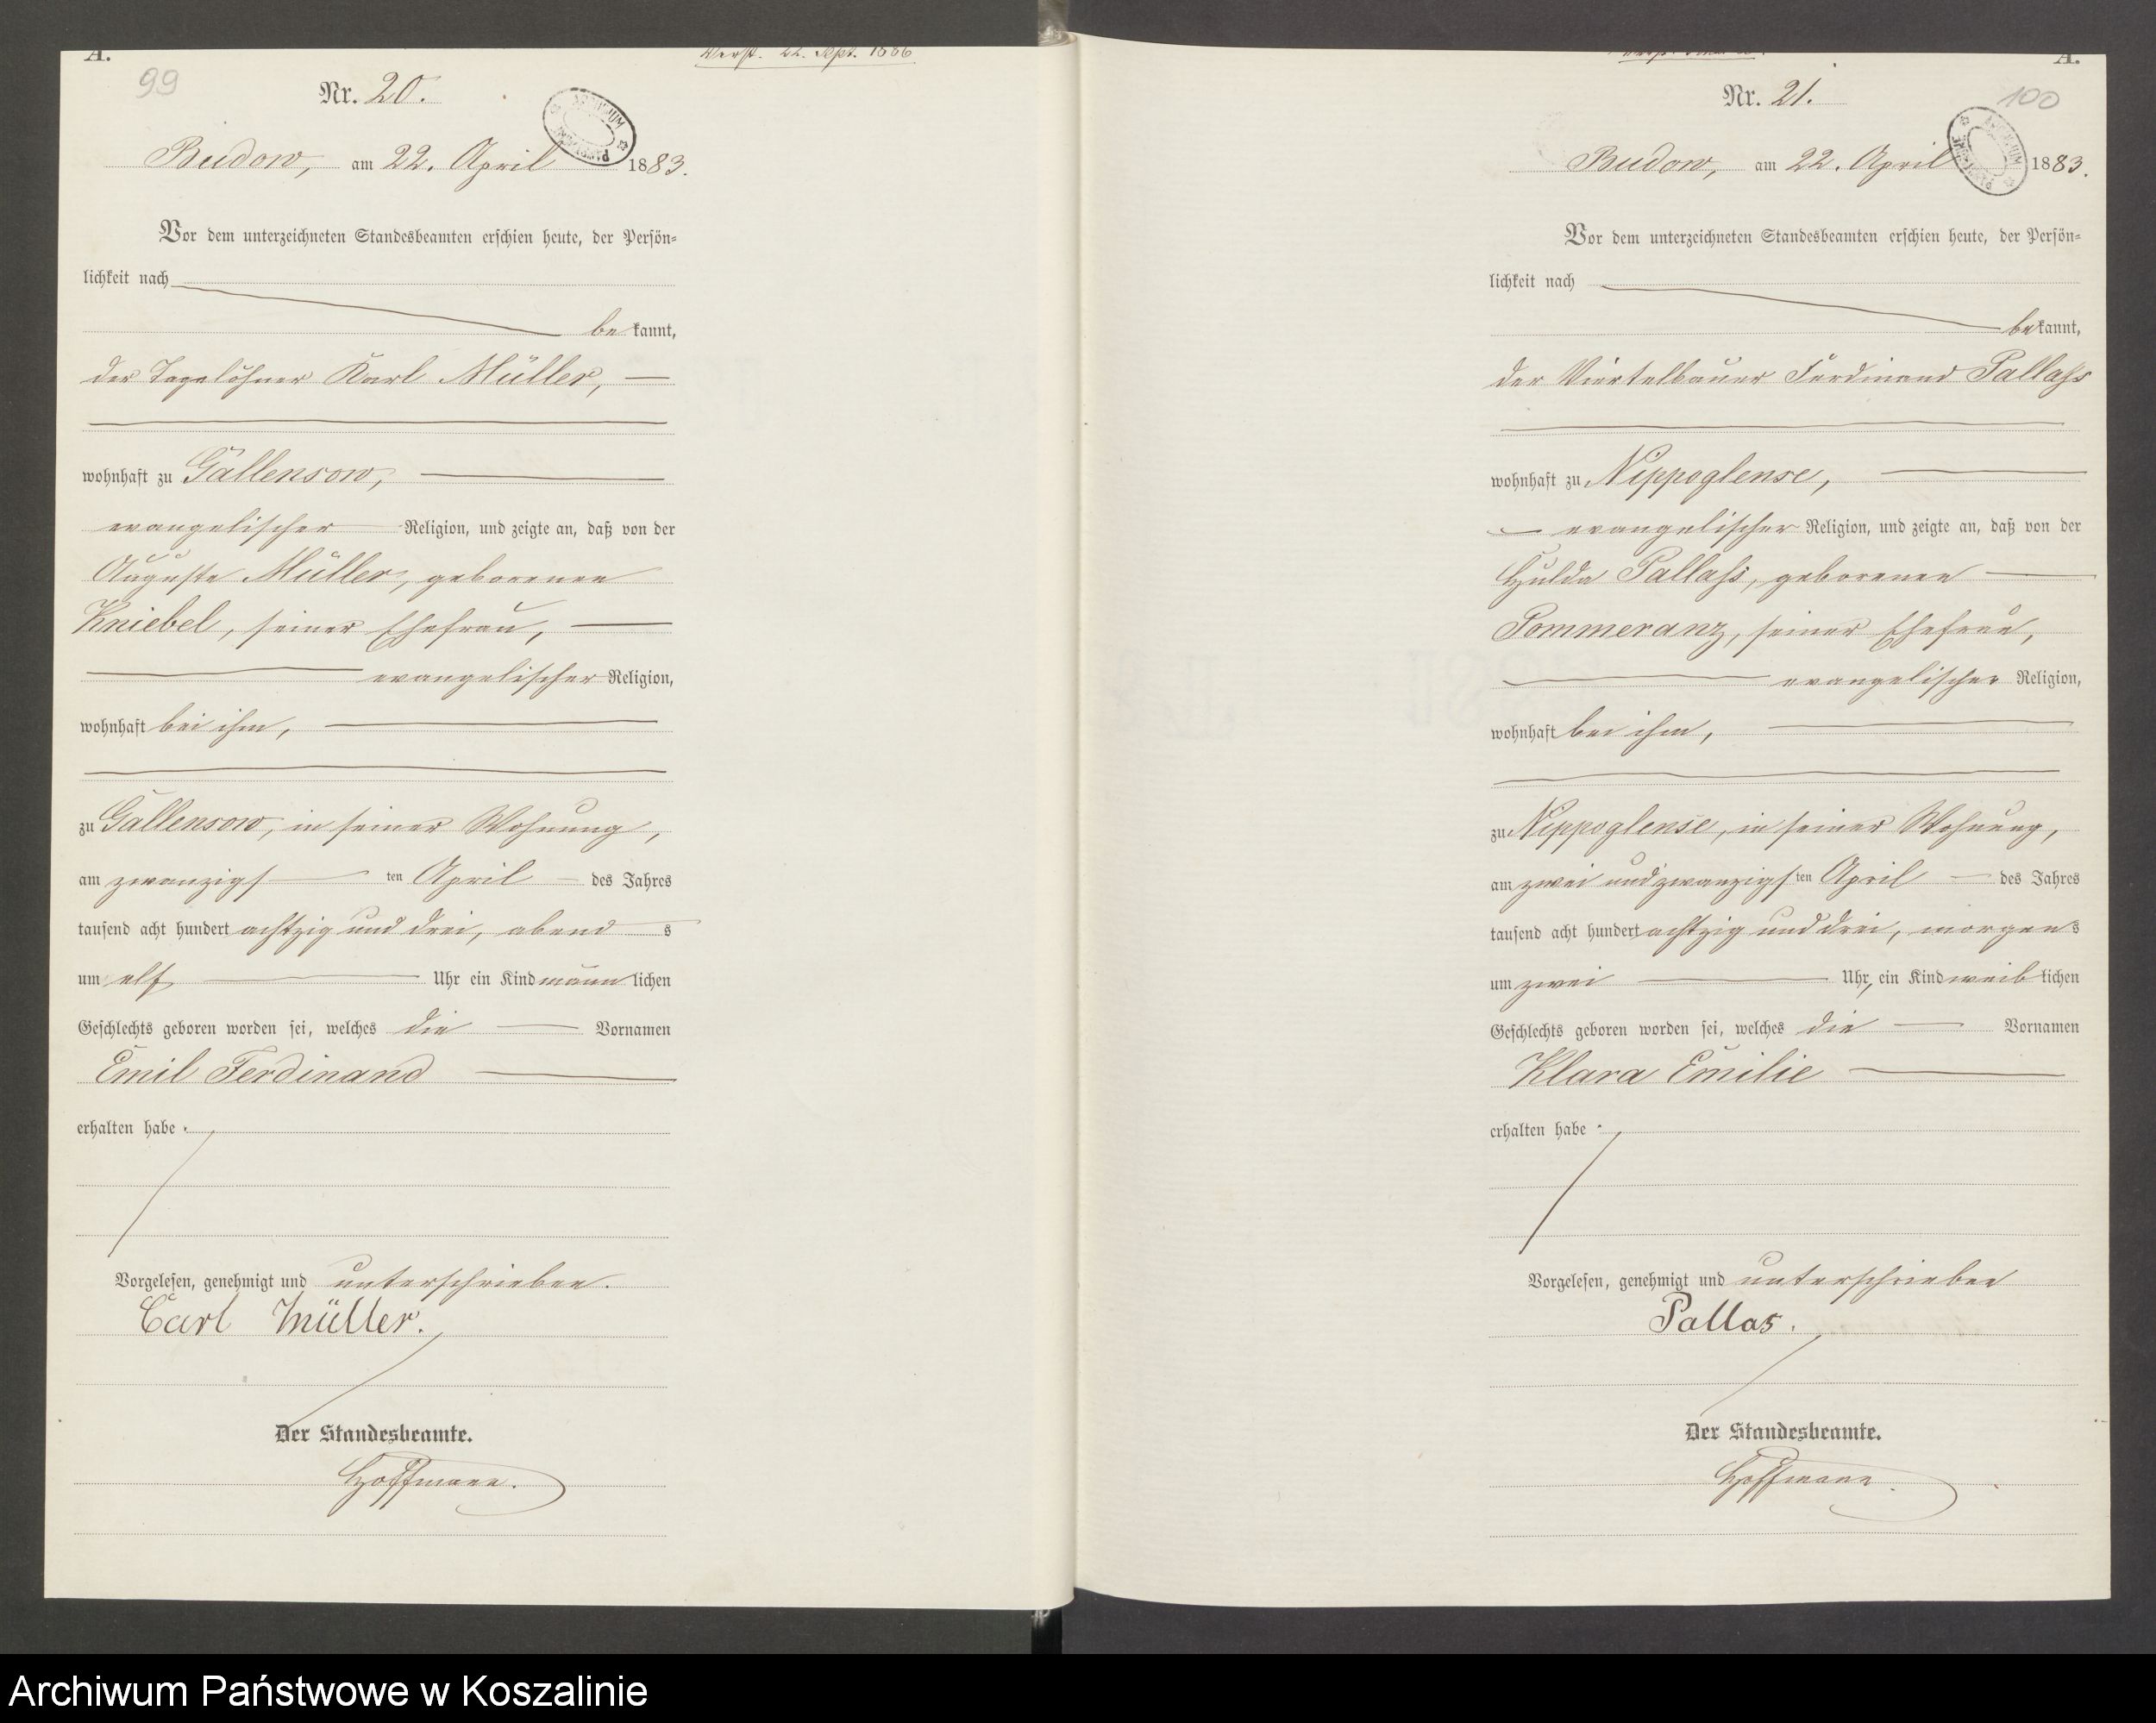 A.
99
Nr. 20.
22. Sept. 1886
ARCHIWUM PAŃSTWOWE
Budow, am 22. April 1883.
Vor dem unterzeichneten Standesbeamten erschien heute, der Persön=
lichkeit nach
be kannt,
der Tagelöhner Karl Müller,
wohnhaft zu Gallensow,
evangelischer Religion, und zeigte an, daß von der
Auguste Müller, geborenen
Kniebel, seiner Ehefrau,
evangelischer Religion,
wohnhaft bei ihm,
zu Gallensow, in seiner Wohnung,
am zwanzigs ten April des Jahres
tausend acht hundert achtzig und drei, abend s
um elf Uhr ein Kind männ lichen
Geschlechts geboren worden sei, welches die Vornamen
Emil Ferdinand
erhalten habe.
Vorgelesen, genehmigt und unterschrieben.
Carl Müller.
Der Standesbeamte.
Hoffmann.
A.
100
Nr. 21.
ARCHIWUM PAŃSTWOWE
Budow, am 22. April 1883.
Vor dem unterzeichneten Standesbeamten erschien heute, der Persön=
lichkeit nach
be kannt,
der Viertelbauer Ferdinand Pallaß
wohnhaft zu Nippoglense,
evangelischer Religion, und zeigte an, daß von der
Hulda Pallaß, geborenen
Pommeranz, seiner Ehefrau,
evangelischer Religion,
wohnhaft bei ihm,
zu Nippoglense, in seiner Wohnung,
am zwei und zwanzigs ten April des Jahres
tausend acht hundert achtzig und drei, morgen s
um zwei Uhr, ein Kind weib lichen
Geschlechts geboren worden sei, welches die Vornamen
Klara Emilie
erhalten habe.
Vorgelesen, genehmigt und unterschrieben
Pallas.
Der Standesbeamte.
Hoffmann.
Archiwum Państwowe w Koszalinie